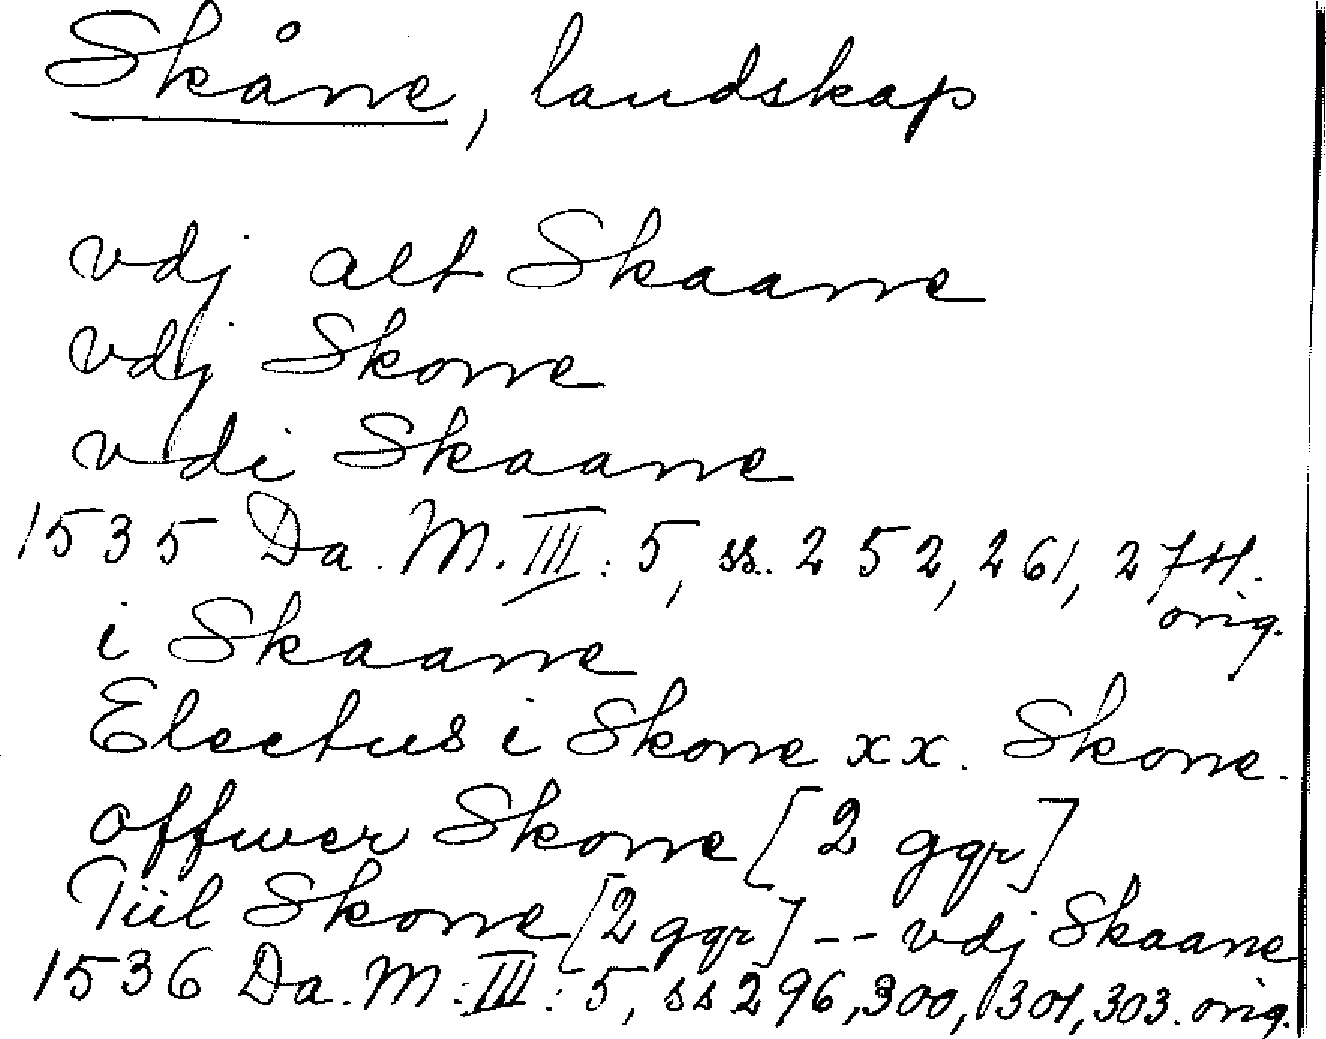 Skåne, landskap
vdj alt Skaane
vdj Skone
vdi Skaane
1535 Da. M. III: 5, ss. 252, 261, 274.
orig.
i Skaane
Electus i Skone xx. Skone.
offwer Skone [2 ggr]
Tiil Skone [2 ggr] -- vdj Skaane
1536 Da. M. III: 5, ss 296, 300, 301, 303. orig.